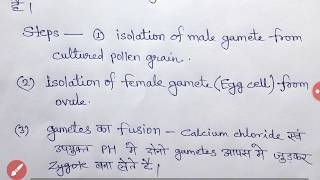 है।
Steps — ① isolation of male gamete from
cultured pollen grain.
(2) Isolation of female gamete (Egg cell) from
ovule.
(3) gametes का fusion - Calcium chloride एवं
उपयुक्त PH में दोनो gametes आपस में जुड़कर
Zygote बना लेते हैं।